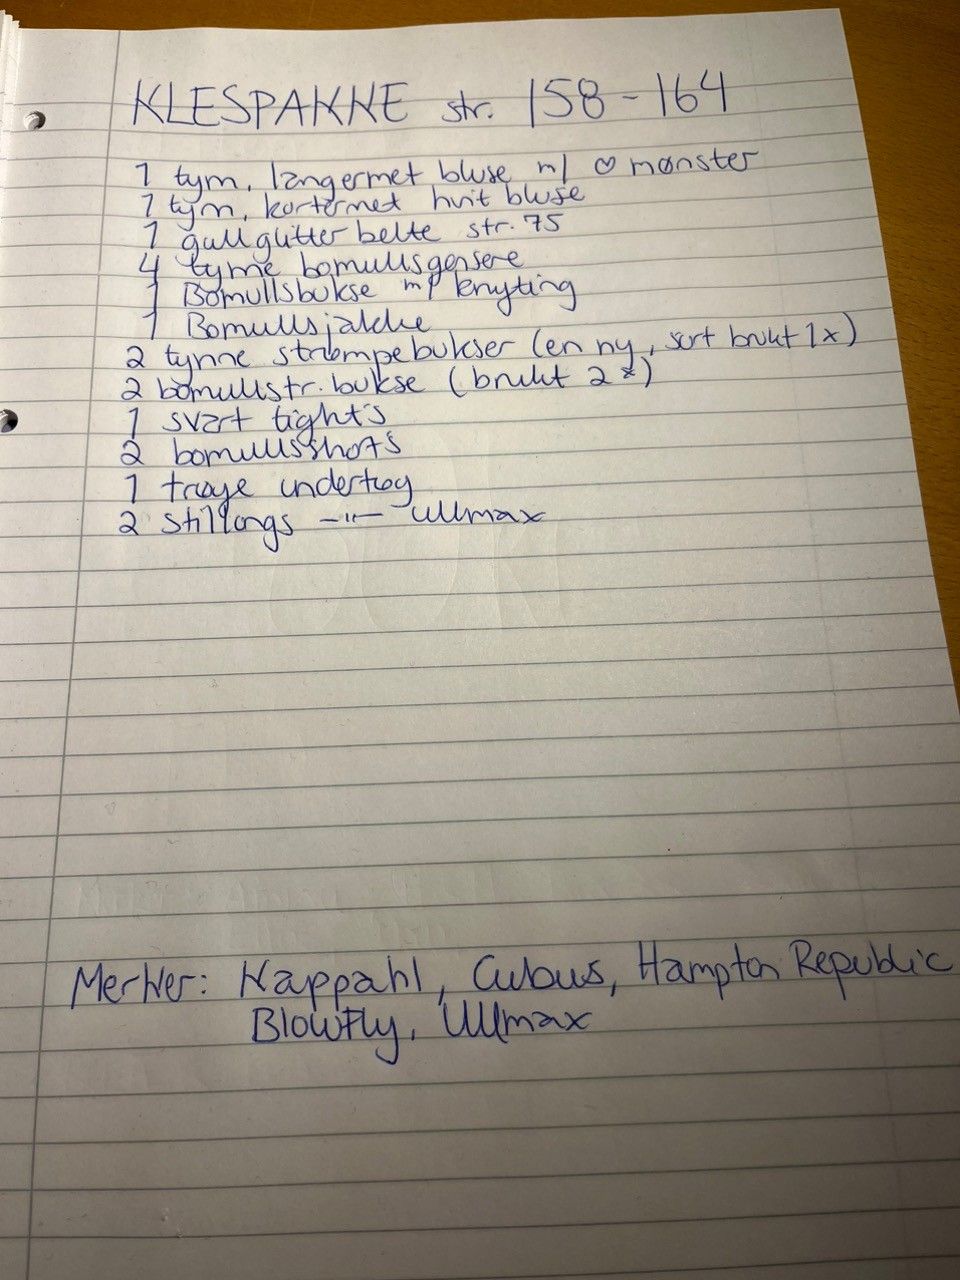 KLESPAKKE str. 158-164
1 tynn, langermet bluse m/ ♡ mønster
1 tynn, kortermet hvit bluse
1 gullglitter belte str. 75
4 tynne bomullsgensere
1 Bomullsbukse m/ knyting
1 Bomullsjakke
2 tynne strømpebukser (en ny, sort brukt 1x)
2 bomullstr.bukse (brukt 2x)
1 svart tight's
2 bomullsshorts
1 trøye undertøy
2 stillongs -"- Ullmax
Merker: Kappahl, Cubus, Hampton Republic
Blowfly, Ullmax